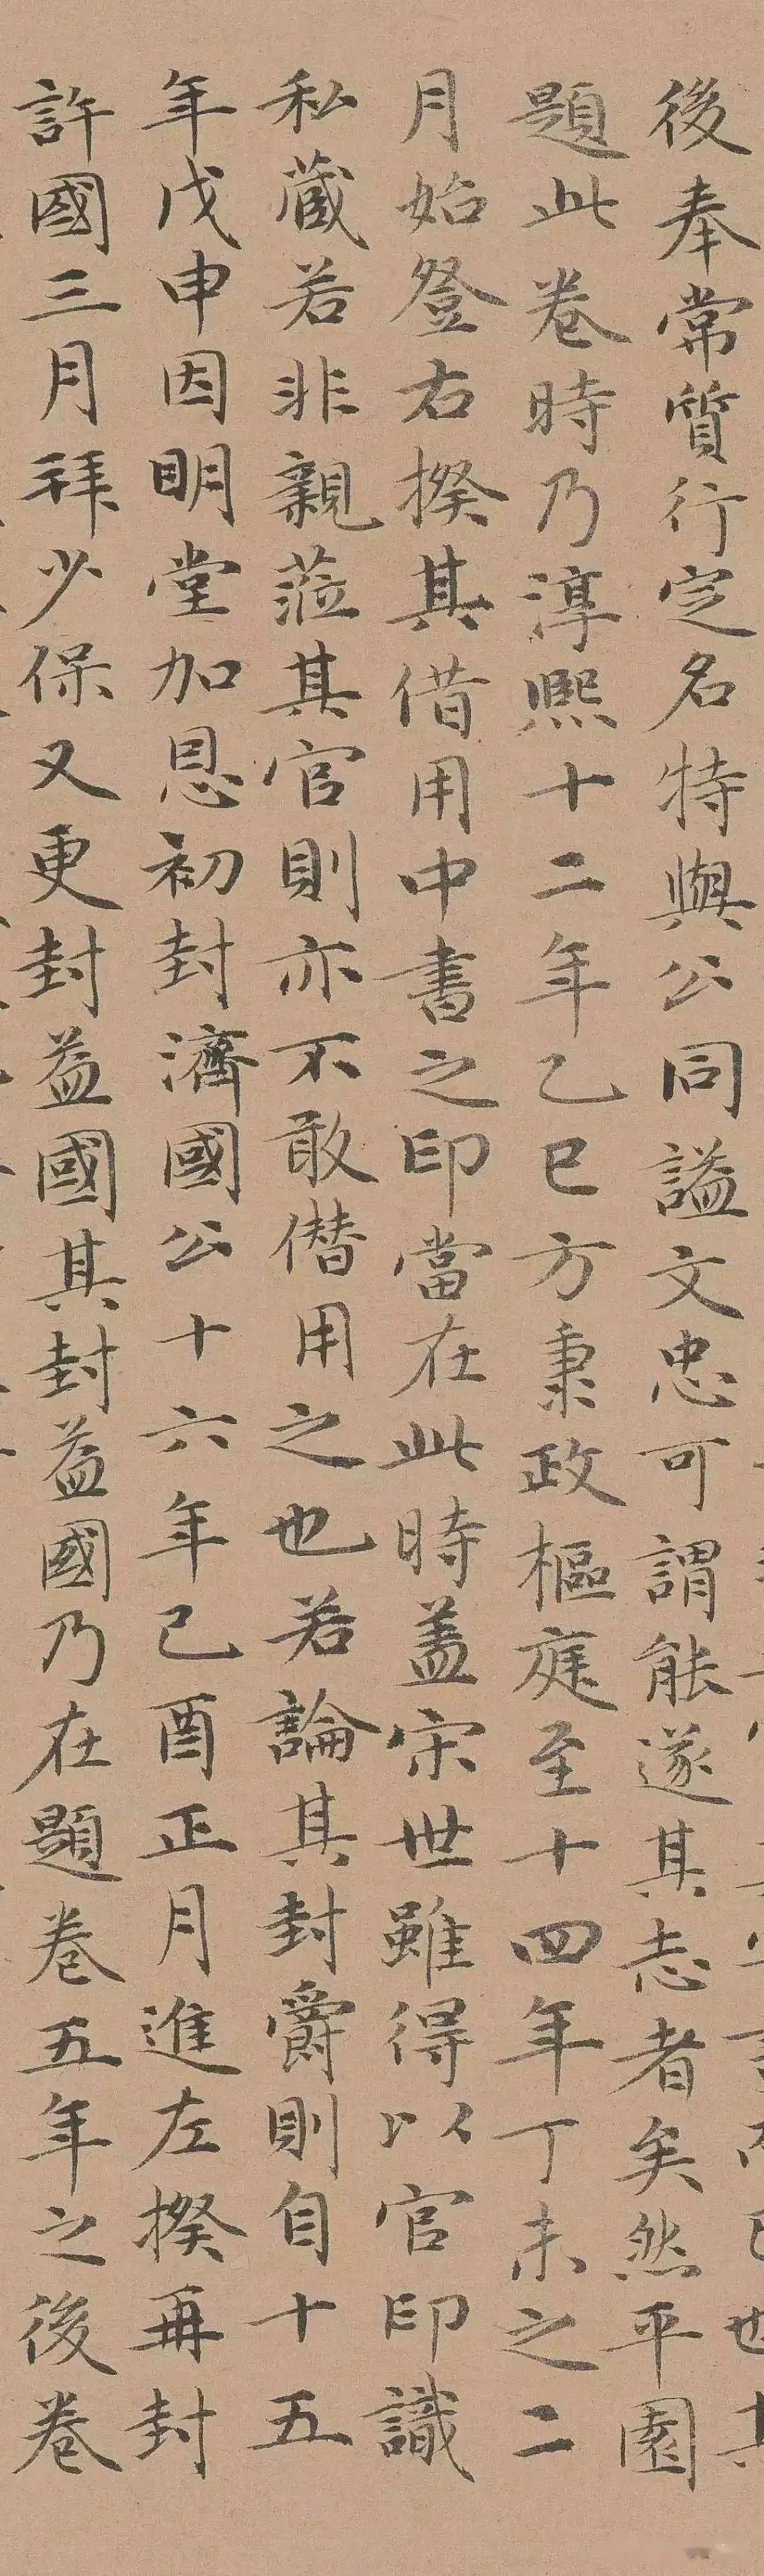 後奉常質行定名特與公同諡文忠可謂能遂其志者矣然平園
題此卷時乃淳熙十二年乙巳方秉政樞庭至十四年丁未之二
月始登右揆其借用中書之印當在此時蓋宋世雖得以官印識
私藏若非親蒞其官則亦不敢僭用之也若論其封爵則自十五
年戊申因明堂加恩初封濟國公十六年己酉正月進左揆再封
許國三月拜少保又更封益國其封益國乃在題卷五年之後卷